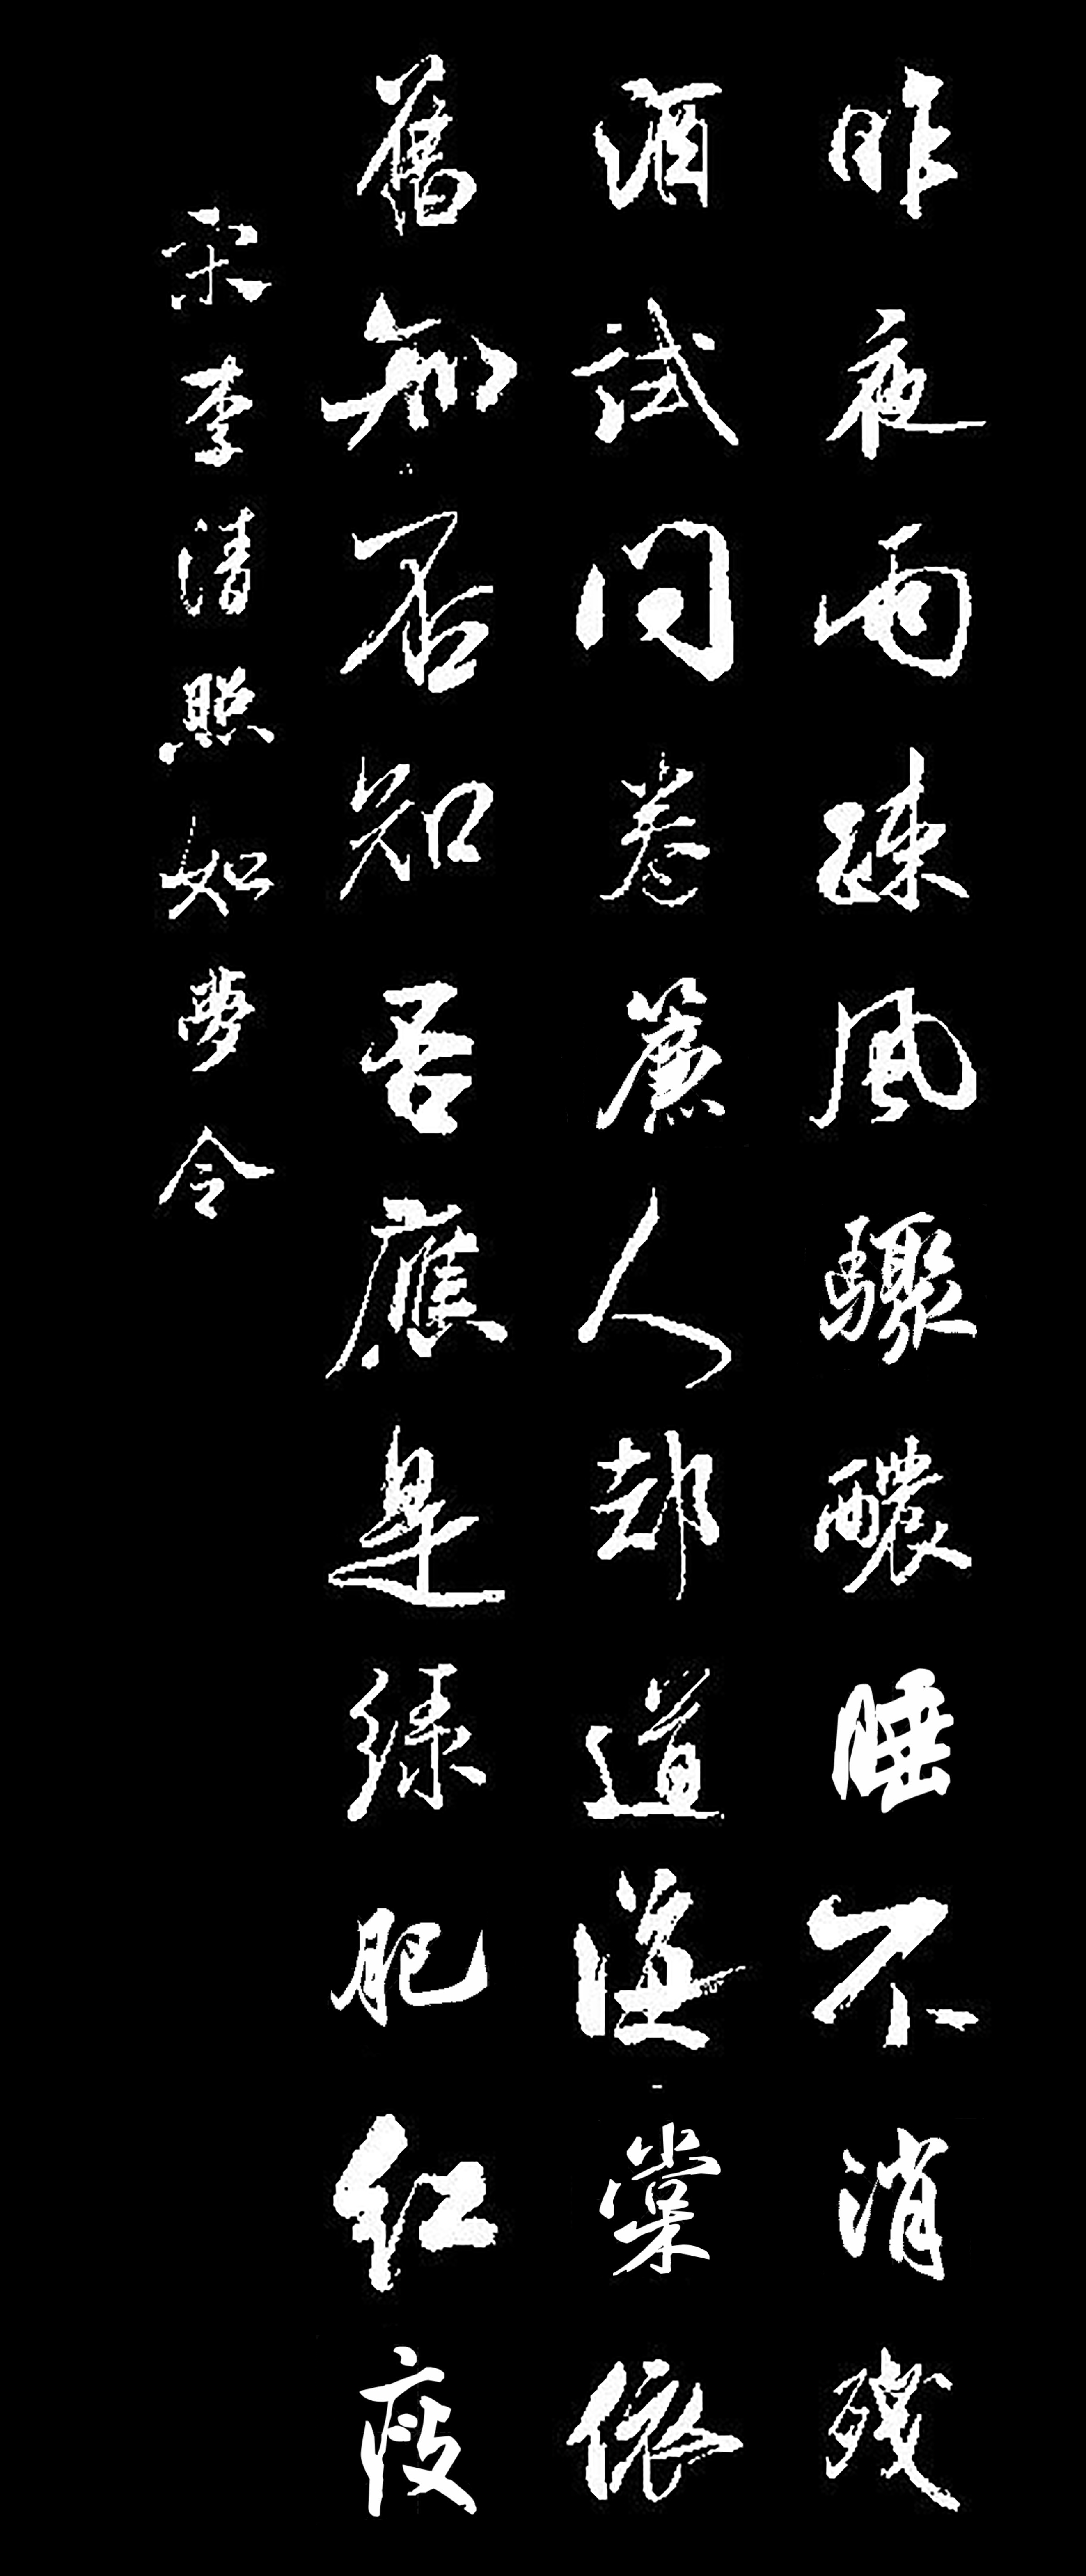 昨夜雨疎風驟醲睡不消残
酒試问卷簾人却道海棠依
舊知否知否應是绿肥红瘦
宋李清照如夢令